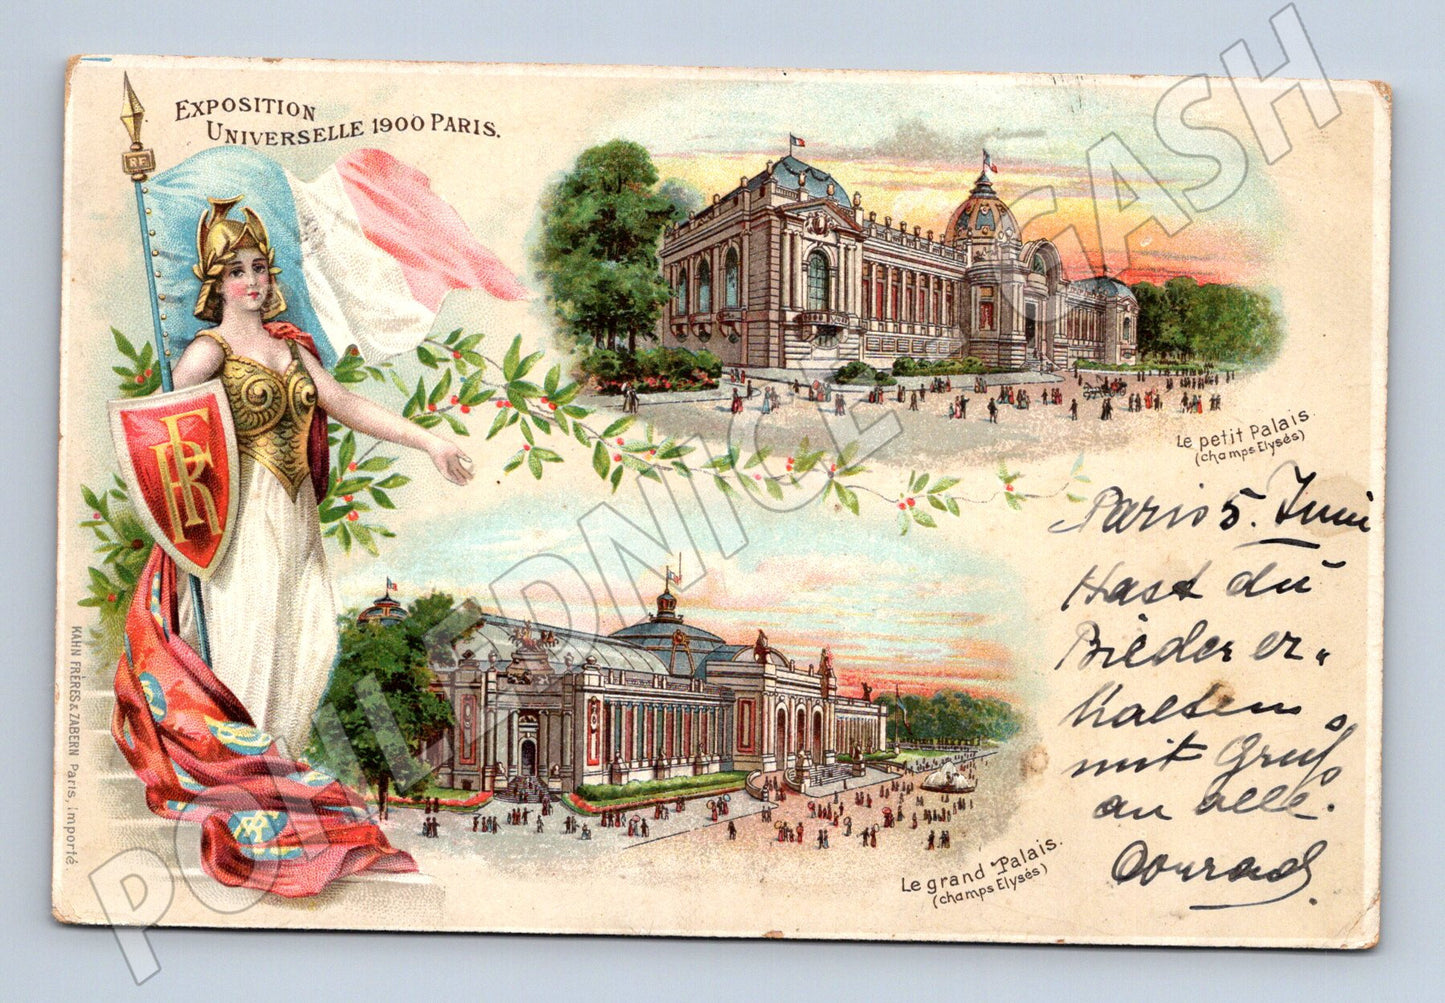 EXPOSITION
UNIVERSELLE 1900 PARIS.
RF
RF
Le petit Palais.
(champs Elysés)
Paris 5. Juni
Hast du
Bieder er„
halten
mit Gruß
an alle.
Conrad
Le grand Palais.
(champs Elysés)
KAHN FRÈRES & ZABERN Paris, importé
RF
POHLEDNICE CASH